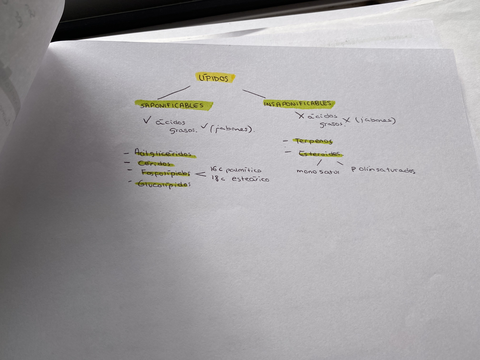 LÍPIDOS.
SAPONIFICABLES
INSAPONIFICABLES
✓ ácidos grasos. ✓ (jabones).
X ácidos grasos. X (jabones)
- Acilglicéridos
- Céridos
- Fosfolípidos < 16c palmítico
18c esteárico
- Glucolípidos
- Terpenos
- Esteroides
monoinsatu
Poliinsaturados